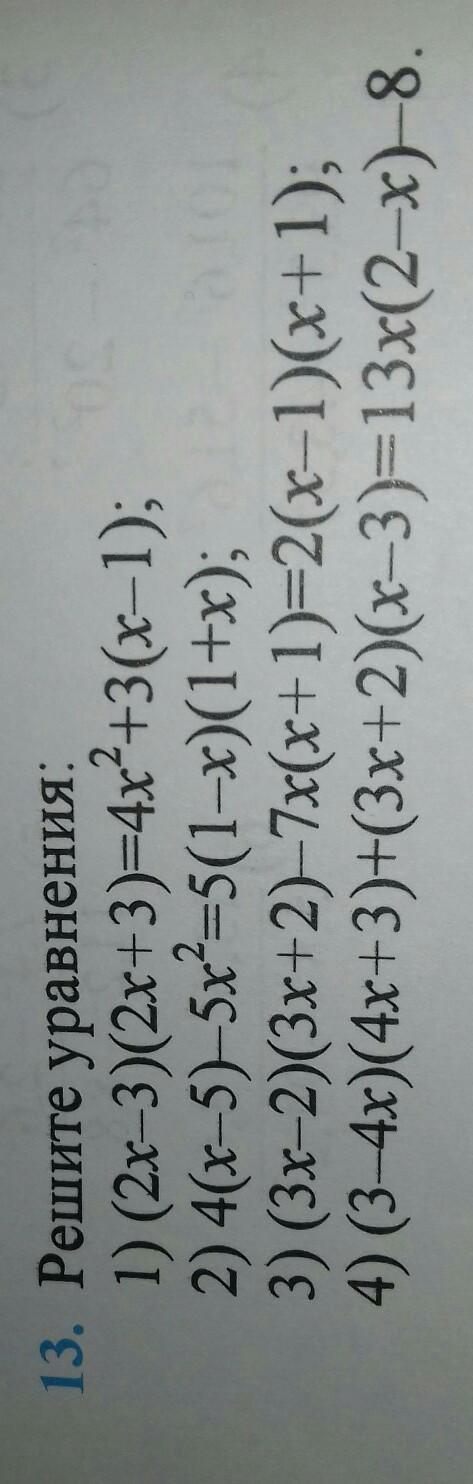 13. Решите уравнения:
1) (2x–3)(2x+3)=4x²+3(x–1);
2) 4(x–5)–5x²=5(1–x)(1+x);
3) (3x–2)(3x+2)–7x(x+1)=2(x–1)(x+1);
4) (3–4x)(4x+3)+(3x+2)(x–3)=13x(2–x)–8.